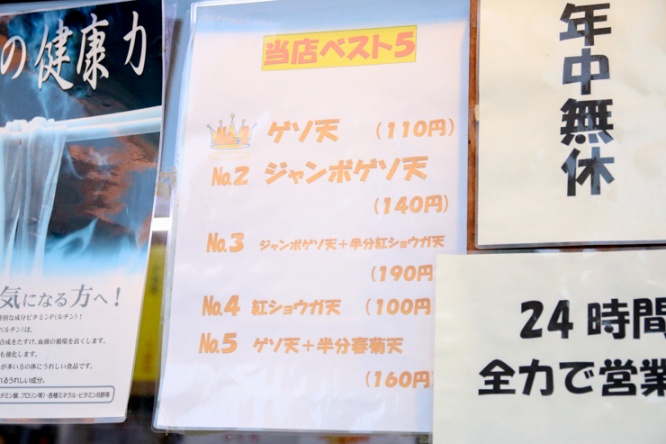 の健康力
気になる方へ!
当店ベスト5
ゲソ天 (110円)
No.2 ジャンボゲソ天
(140円)
No.3 ジャンボゲソ天+半分紅ショウガ天
(190円
No.4 紅ショウガ天 (100円
No.5 ゲソ天+半分春菊天
(160円
年中無休
24時間
全力で営業